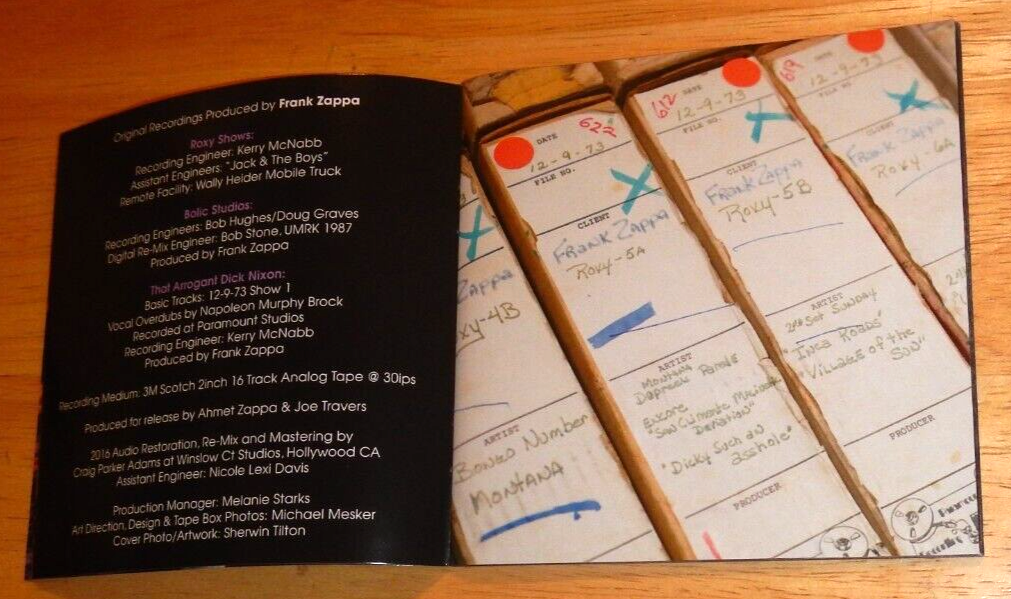 Original Recordings Produced by Frank Zappa
Roxy Shows:
Recording Engineer: Kerry McNabb
Assistant Engineers: "Jack & The Boys"
Remote Facility: Wally Heider Mobile Truck
Bolic Studios:
Recording Engineers: Bob Hughes/Doug Graves
Digital Re-Mix Engineer: Bob Stone, UMRK 1987
Produced by Frank Zappa
That Arrogant Dick Nixon:
Basic Tracks: 12-9-73 Show 1
Vocal Overdubs by Napoleon Murphy Brock
Recorded at Paramount Studios
Recording Engineer: Kerry McNabb
Produced by Frank Zappa
Recording Medium: 3M Scotch 2inch 16 Track Analog Tape @ 30ips
Produced for release by Ahmet Zappa & Joe Travers
2016 Audio Restoration, Re-Mix and Mastering by
Craig Parker Adams at Winslow Ct Studios, Hollywood CA
Assistant Engineer: Nicole Lexi Davis
Production Manager: Melanie Starks
Art Direction, Design & Tape Box Photos: Michael Mesker
Cover Photo/Artwork: Sherwin Tilton
Zappa
xy-4B
ARTIST
Bongo Number
MONTANA
622
DATE
12-9-73
FILE NO.
X
CLIENT
FRANK Zappa
Roxy-5A
ARTIST
Montana
Dupree's Parade
Encore
"San Clemente
Donation"
"Dicky Such an
asshole"
PRODUCER
612
DATE
12-9-73
FILE NO.
X
CLIENT
Frank Zappa
Roxy-5B
ARTIST
2nd Set Sunday
"Inca Roads"
"Village of the
Sun"
PRODUCER
619
DATE
12-9-73
X
CLIENT
Frank Zappa
Roxy-6A